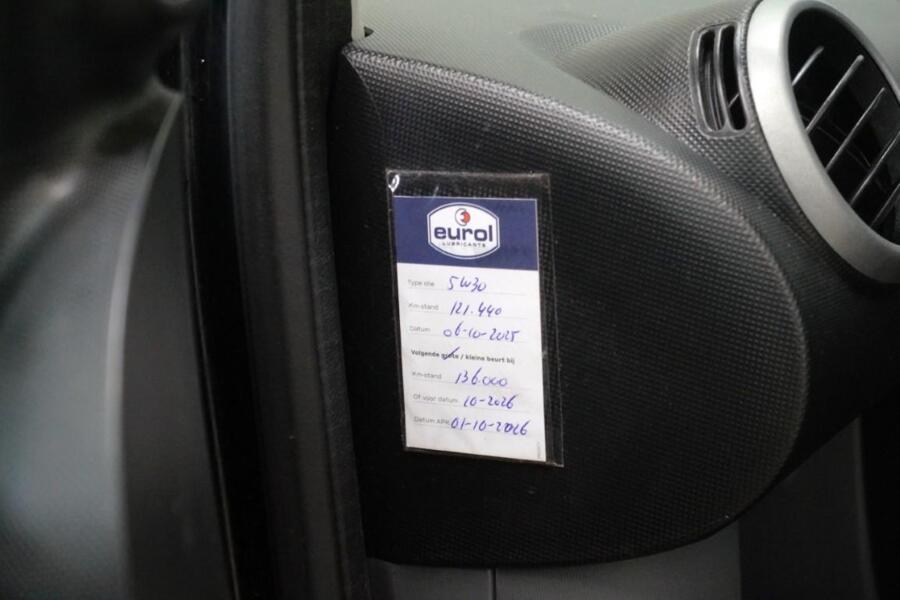 eurol
LUBRICANTS
Type olie 5W30
Km-stand 121.440
Datum 06-10-2025
Volgende grote / kleine beurt bij
Km-stand 136.000
Of voor datum 10-2026
Datum APK 01-10-2026